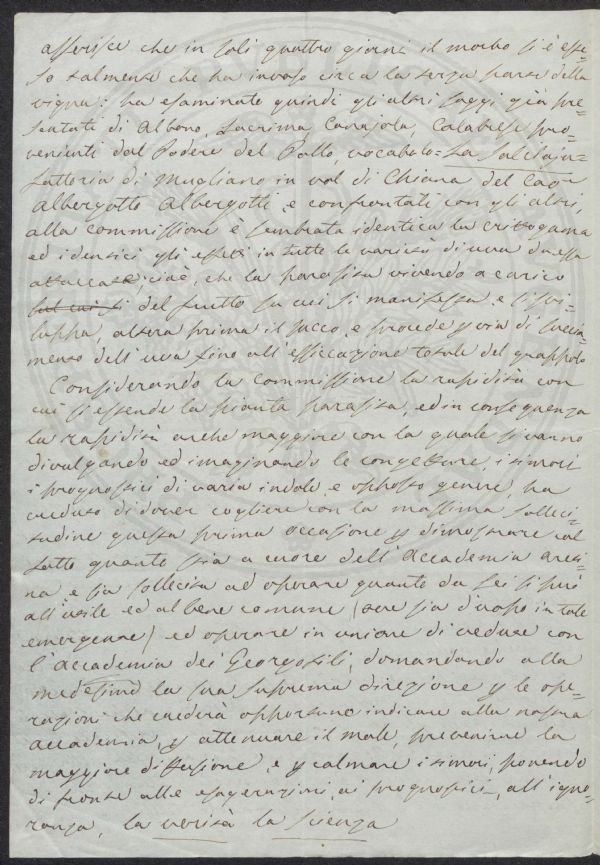 asserisce che in soli quattro giorni il morbo si è este=
so talmente che ha invaso circa la terza parte della
vigna: ha esaminato quindi gli altri saggi già pre=
sentati di Albano, Lacrima, Canajola, Calabrese pro=
venienti dal Podere del Pollo, vocabolo=La
fattoria di Mugliano in val di Chiana del Cav
Albergotto Albergotti, e confrontati con gli altri,
alla commissione è sembrata identica la crittogama
ed identici gli effetti in tutte le varietà di uva da essa
attaccate cioè, che la parasita vivendo a carico
del frutto su cui si manifesta, e si svi=
luppa, altera prima il succo, e procede p via di succia=
mento dell'uva fino all'essiccazione totale del grappolo
Considerando la commissione la rapidità con
cui si estende la pianta parasita, ed in conseguenza
la rapidità anche maggiore con la quale si vanno
divulgando ed imaginando le congetture, i timori
i prognostici di varia indole e opposto genere ha
creduto di dover cogliere con la massima solleci=
tudine questa prima occasione p dimostrare col
fatto quanto sia a cuore dell'Accademia areti=
na, e sia sollecita ad operare quanto da Lei si può
all'utile ed al bene comune (ove sia d'uopo in tale
emergenza) ed operare in unione di vedute con
l'Accademia dei Georgofili, domandando alla
medesima la sua suprema direzione p le ope=
razioni che crederà opportuno indicare alla nostra
accademia, p attenuare il male, prevenirne la
maggiore diffusione, e p calmare i timori, ponendo
di fronte alle esagerazioni, ai prognostici, all'igno=
ranza, la verità la scienza